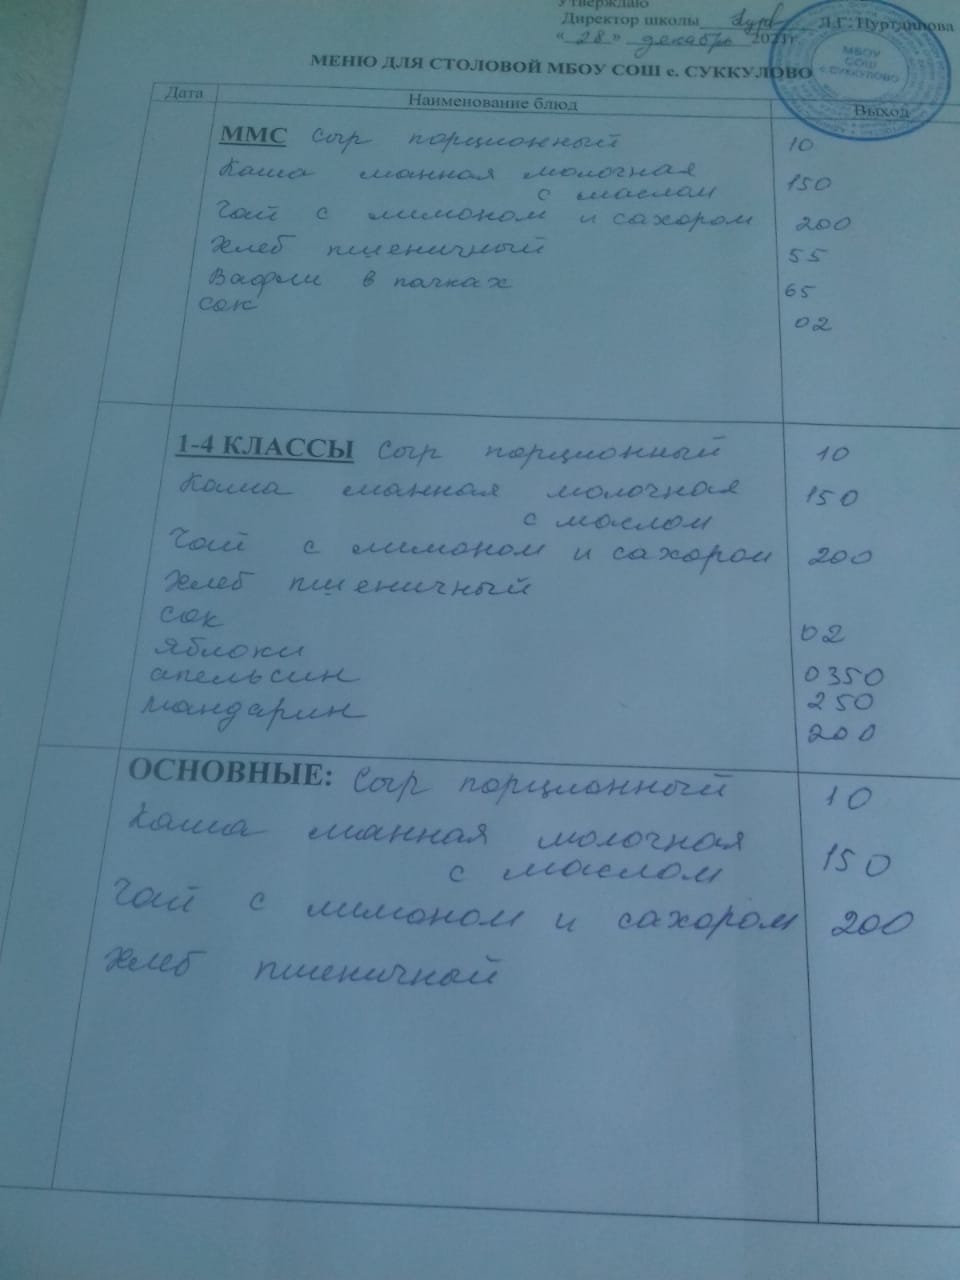 Утверждаю
Директор школы Л.Г. Нургалиова
« 28 » декабрь 2021г
МЕНЮ ДЛЯ СТОЛОВОЙ МБОУ СОШ с. СУККУЛОВО
МБОУ
СОШ
с.СУККУЛОВО
Дата Наименование блюд Выход
ММС Сыр порционный 10
Каша манная молочная 150
с маслом
Чай с лимоном и сахором 200
Хлеб пшеничный 55
Вафли в пачках 65
Сок 02
1-4 КЛАССЫ Сыр порционный 10
Каша манная молочная 150
с маслом
Чай с лимоном и сахором 200
Хлеб пшеничный
Сок 02
яблоки 0350
апельсин 250
мандарин 200
ОСНОВНЫЕ: Сыр порционный 10
Каша манная молочная 150
с маслом
Чай с лимоном и сахором 200
Хлеб пшеничный